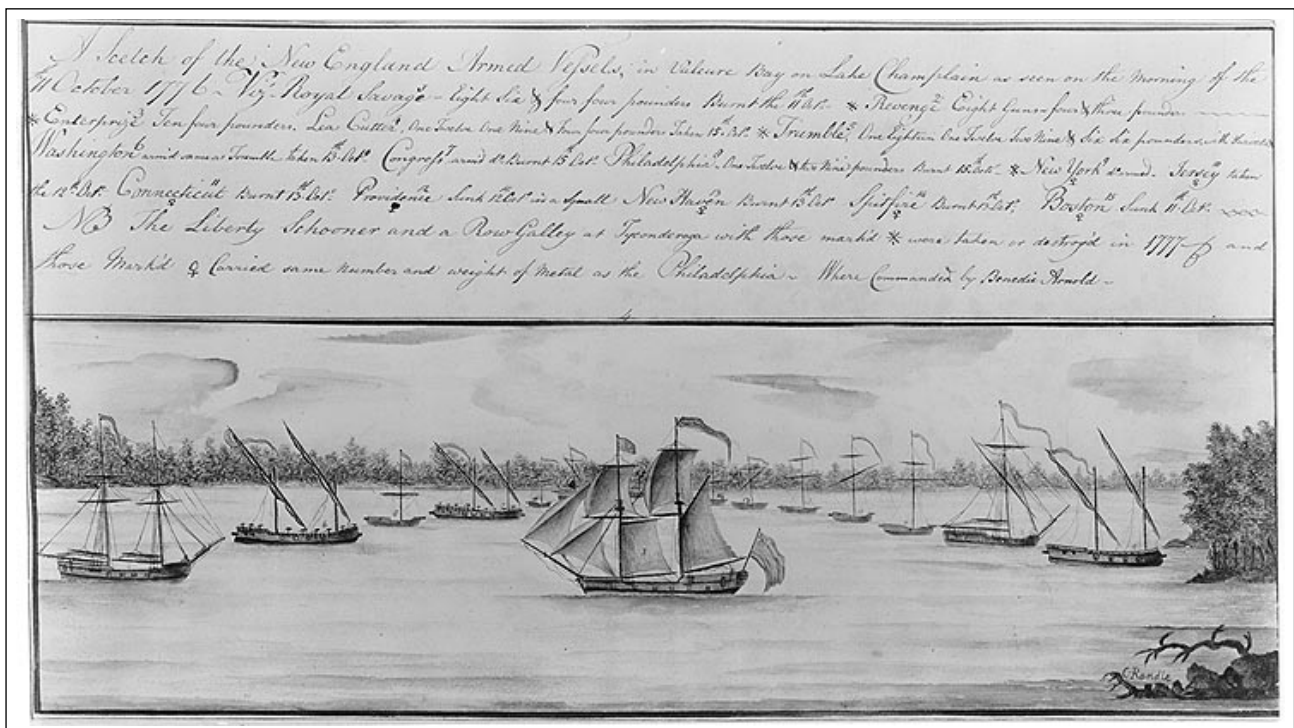 A Scetch of the New England Armed Vessels, in Valcure Bay on Lake Champlain as seen on the morning of the
11 October 1776 - Viz. Royal Savage - Eight Six & four four pounders Burnt the 11th Oct. * Revenge Eight Guns four & three pounders
* Enterprize Ten four pounders. Lea Cutter, One Twelve One Nine & four four pounders Taken 13th Oct. * Trumble, One Eighteen One Twelve Two Nine & Six Six pounders, with
Washington armed same as Trumble taken 13th Oct. Congress armd do Burnt 13th Oct. Philadelphia ♀ One Twelve & two Nine pounders Burnt * New York ♀ Jersey taken
the 12th Oct. Connecticut ♀ Burnt 13th Oct. Providence ♀ Sunk 12th Oct. in a small New Haven ♀ Burnt 13th Oct. Spitfire ♀ Burnt Oct. Boston ♀ Sunk 11th Oct.
NB The Liberty Schooner and a Row Galley at Tyconderoga with those markd * were taken or destroyd in 1777 - and
those Markd ♀ Carried same number and weight of Metal as the Philadelphia - Where Commanded by Benedic Arnold -
C Randle